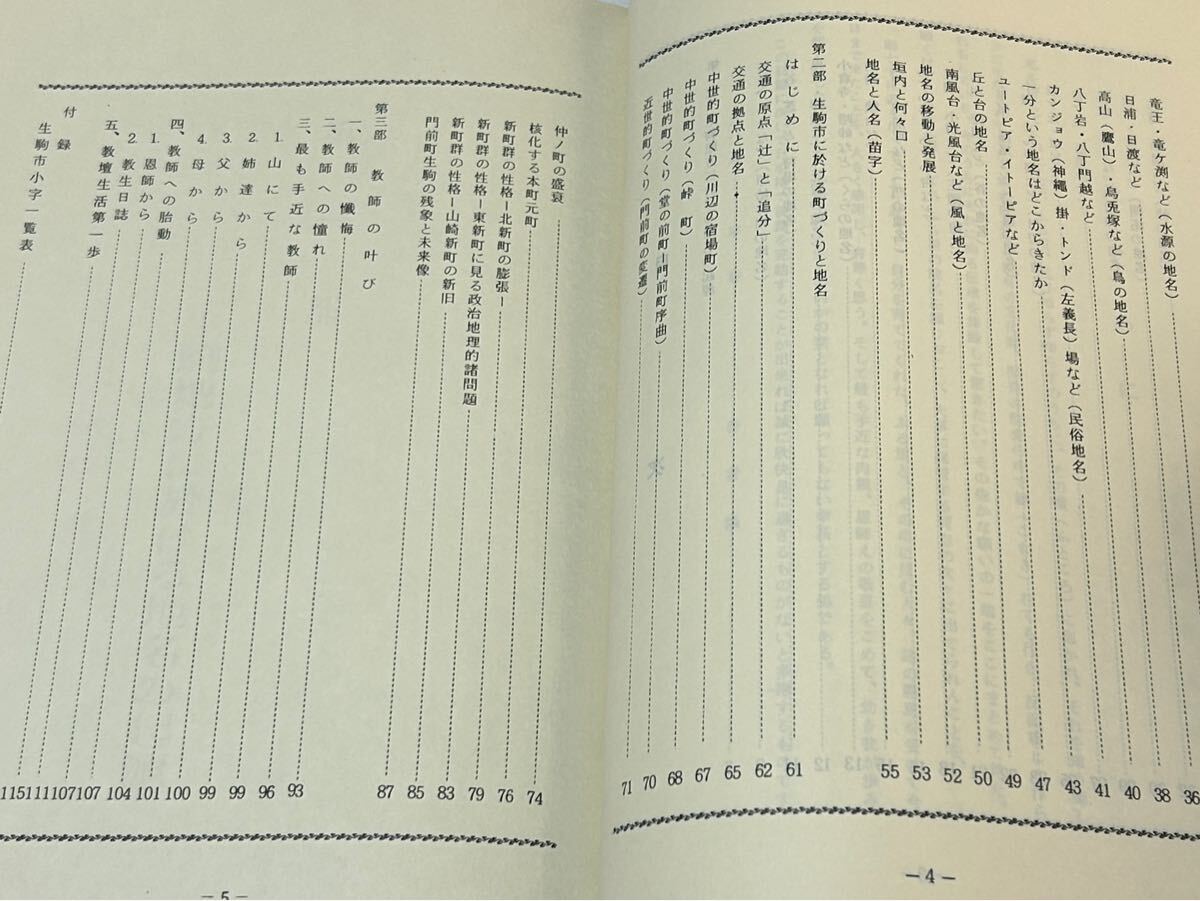 竜王・竜ケ渕など(水源の地名)
日浦・日渡など 36
高山(鷹山)・烏兎塚など(鳥の地名) 38
八丁岩・八丁門越など 40
カンジョウ(神縄)掛・トンド(左義長)場など(民俗地名) 41
一分という地名はどこからきたか 43
ユートピア・イトーピアなど 47
丘と台の地名 49
南風台・光風台など(風と地名) 50
地名の移動と発展 52
垣内と何々口 53
地名と人名(苗字) 55
第二部 生駒市に於ける町づくりと地名
はじめに 61
交通の原点「辻」と「追分」 62
交通の拠点と地名 65
中世的町づくり(川辺の宿場町) 67
中世的町づくり(峠町) 68
中世的町づくり(堂の前町ー門前町序曲) 70
近世的町づくり(門前町の変遷) 71
−4−
仲ノ町の盛衰 74
核化する本町元町 76
新町群の性格ー北新町の膨張ー 79
新町群の性格ー東新町に見る政治地理的諸問題 83
新町群の性格ー山崎新町の新旧 85
門前町生駒の残象と未来像 87
第三部 教師の叶び
一、教師の懺悔 93
二、教師への憧れ 96
三、最も手近な教師 99
1.山にて 99
2.姉達から 100
3.父から 101
4.母から 104
四、教師への胎動 107
1.恩師から 107
2.教生日誌 111
五、教壇生活第一歩 115
付録
生駒市小字一覧表
−5−